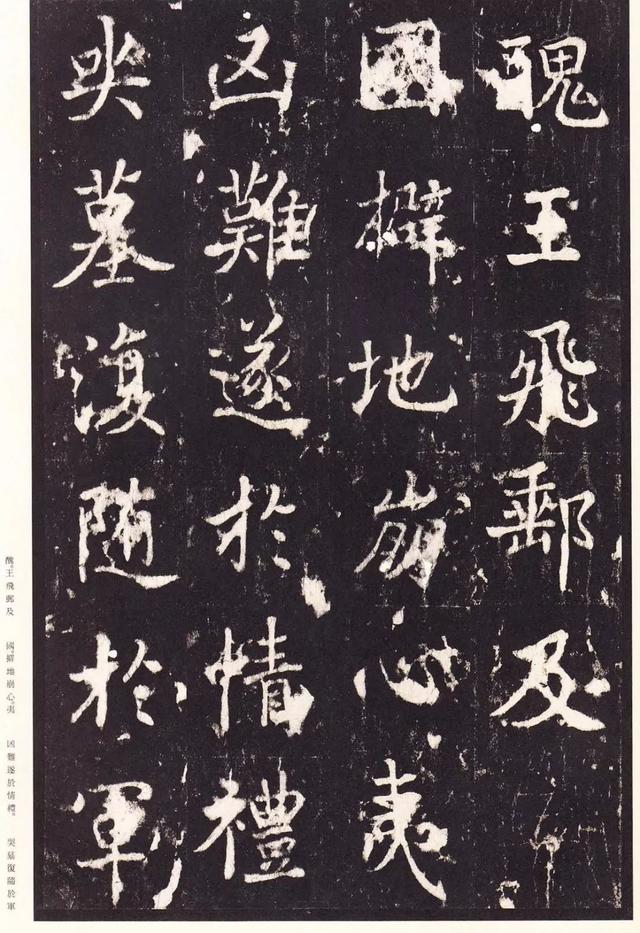 醜王飛郵及
國擗地崩心夷
凶難遂於情禮
哭墓復隨於軍
醜。王飛郵及　國。擗地崩心。夷　凶難遂於情禮。　哭墓復隨於軍